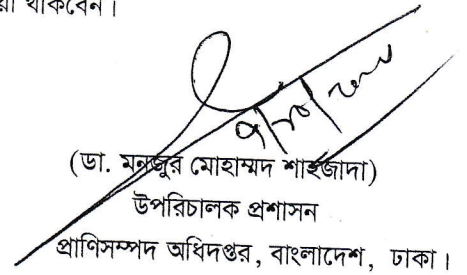 থাকবেন।
(ডা. মনজুর মোহাম্মদ শাহজাদা)
উপরিচালক প্রশাসন
প্রাণিসম্পদ অধিদপ্তর, বাংলাদেশ, ঢাকা।